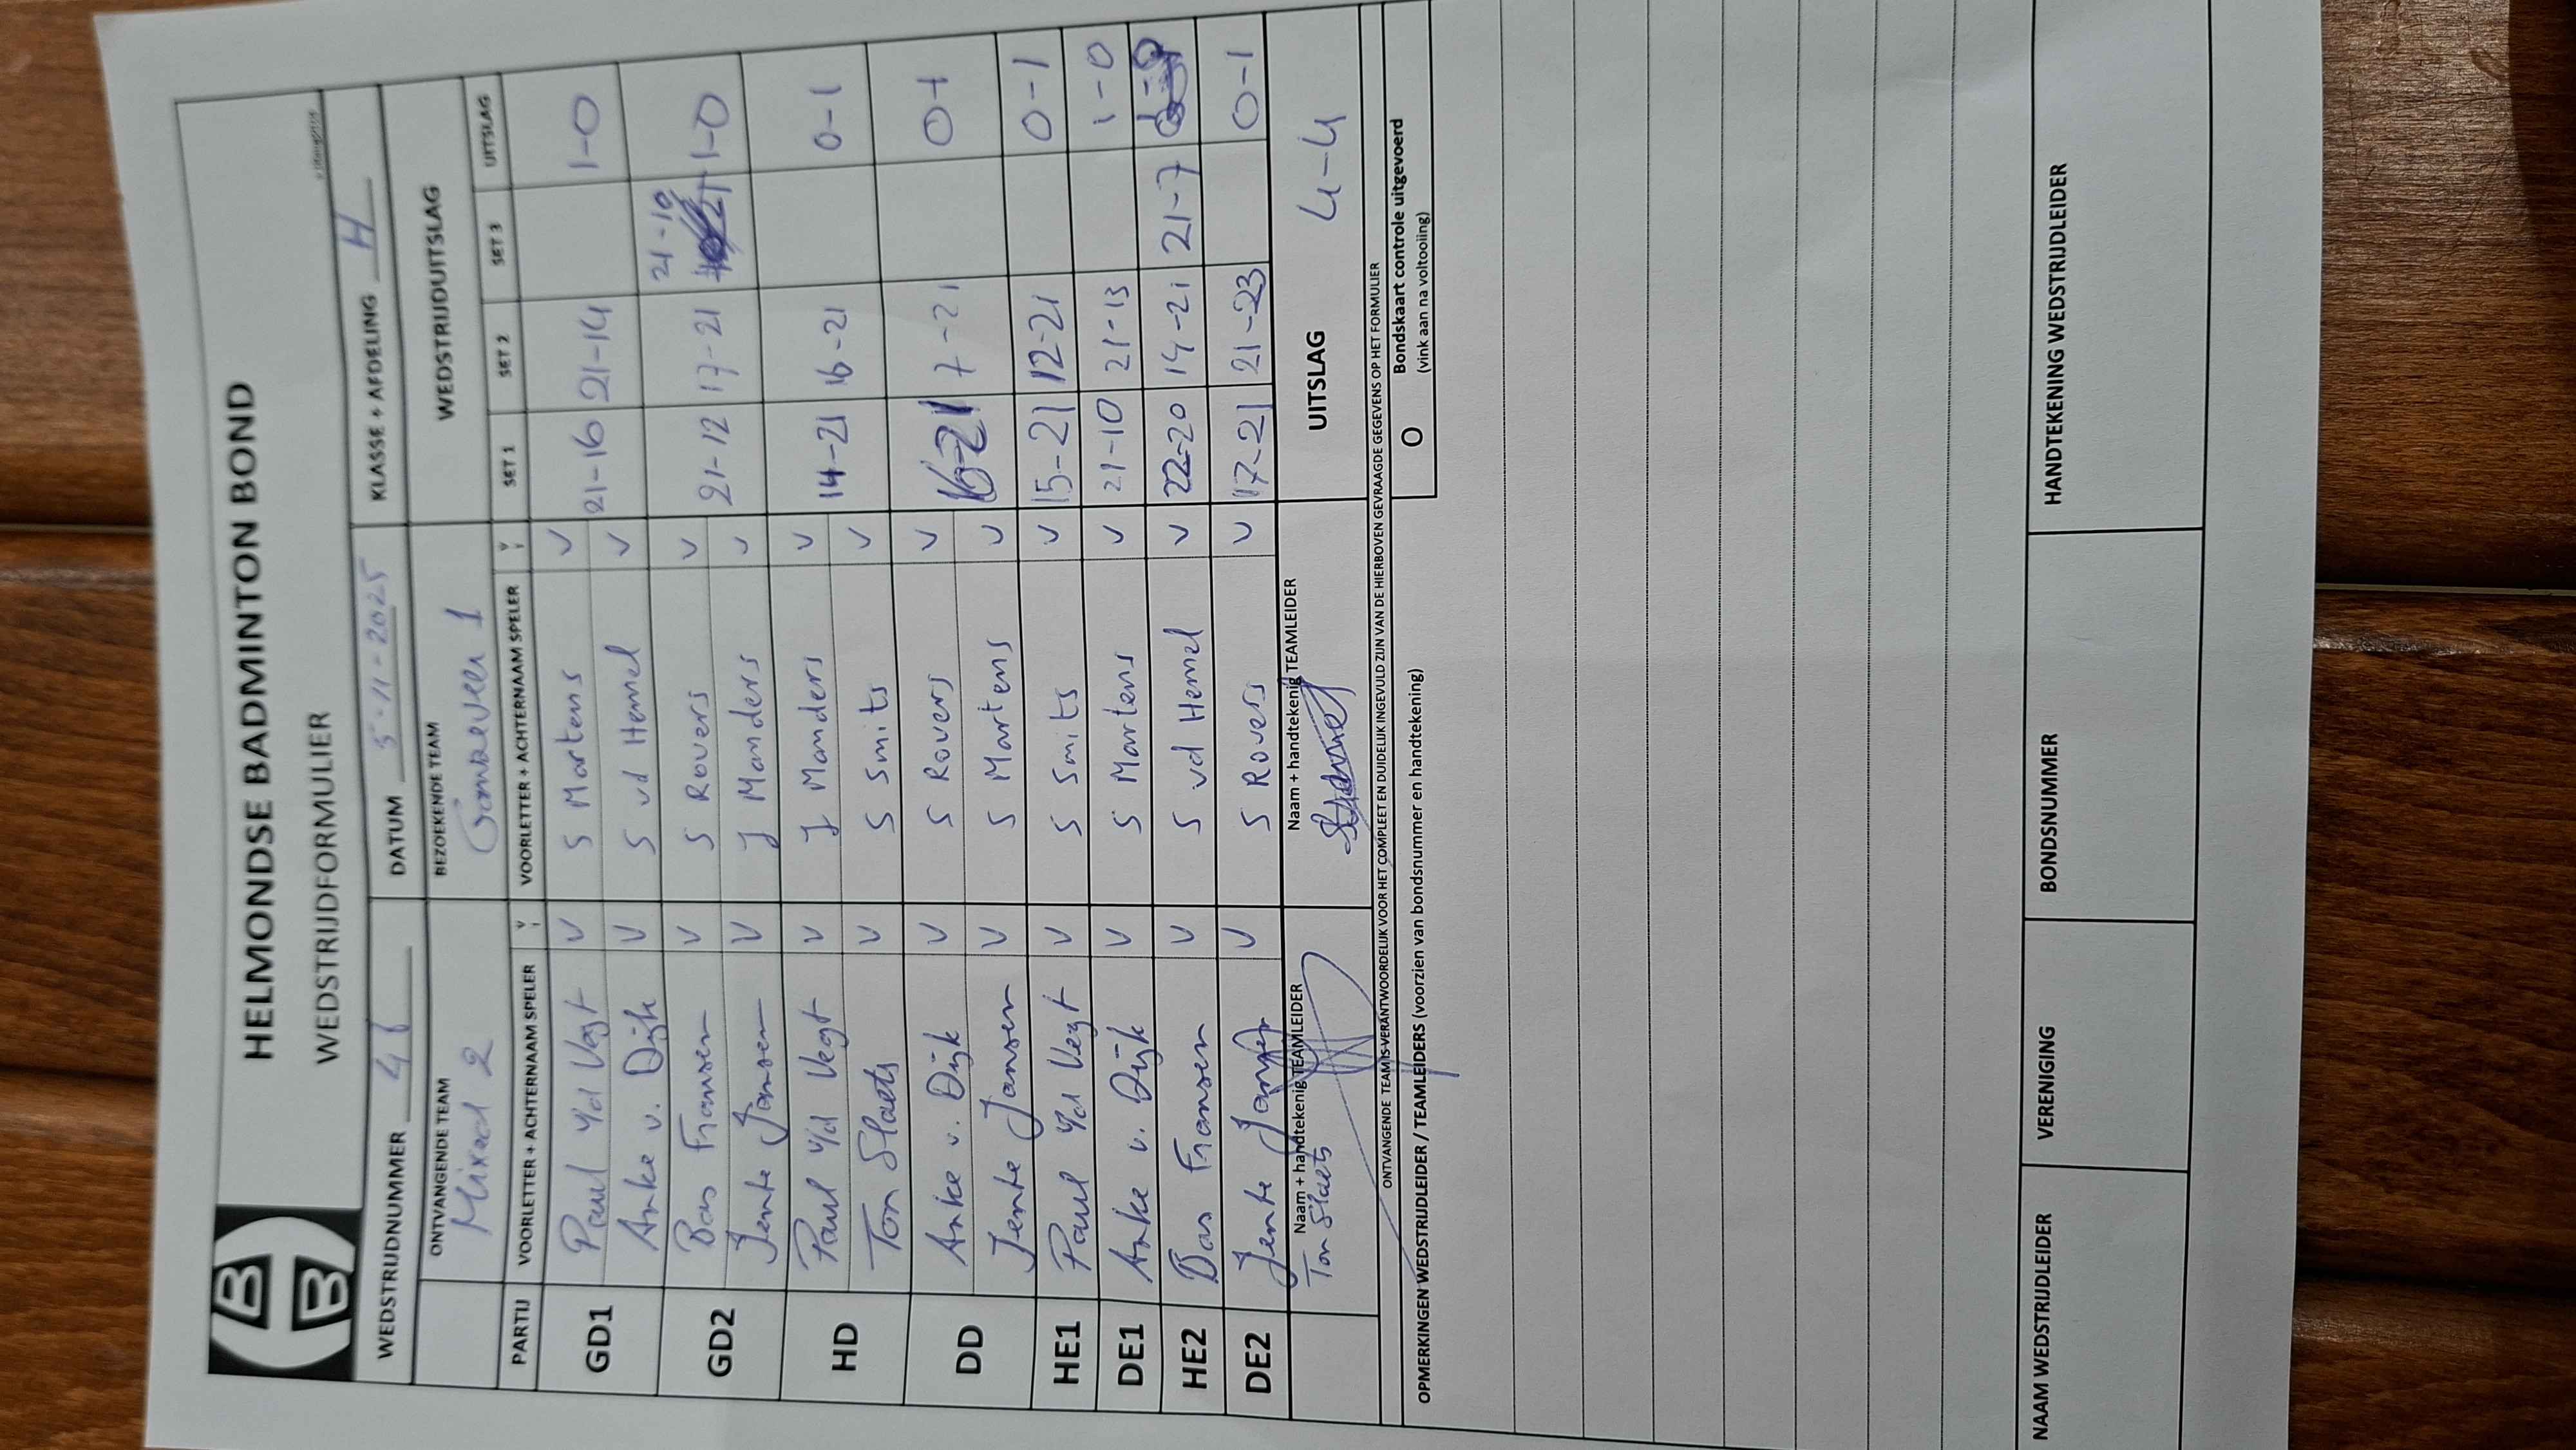 HELMONDSE BADMINTON BOND
WEDSTRIJDFORMULIER
WEDSTRIJDNUMMER DATUM 5-11-2025 KLASSE + AFDELING H
ONTVANGENDE TEAM BEZOEKENDE TEAM WEDSTRIJDUITSLAG
Mixed 2 1
PARTIJ VOORLETTER + ACHTERNAAM SPELER V VOORLETTER + ACHTERNAAM SPELER V SET 1 SET 2 SET 3 UITSLAG
GD1 Paul v/d Vegt V S Martens V 21-16 21-14 1-0
Anke v. Dijk V S vd Hemel V
GD2 Bas Fransen V S Rovers V 21-12 17-21 21-10 1-0
Jente Jansen V J Manders V
HD Paul v/d Vegt V J Manders V 14-21 16-21 0-1
Ton Slaets V S Smits V
DD Anke v. Dijk V S Rovers V 16-21 7-21 0-1
Jente Jansen V S Martens V
HE1 Paul v/d Vegt V S Smits V 15-21 12-21 0-1
DE1 Anke v. Dijk V S Martens V 21-10 21-13 1-0
HE2 Bas Fransen V S vd Hemel V 22-20 14-21 21-7
DE2 Jente Jansen V S Rovers V 17-21 21-23 0-1
Naam + handtekenig TEAMLEIDER Naam + handtekenig TEAMLEIDER UITSLAG 4-4
Ton Slaets
ONTVANGENDE TEAM IS VERANTWOORDELIJK VOOR HET COMPLEET EN DUIDELIJK INGEVULD ZIJN VAN DE HIERBOVEN GEVRAAGDE GEGEVENS OP HET FORMULIER
O Bondskaart controle uitgevoerd
(vink aan na voltooiing)
OPMERKINGEN WEDSTRIJDLEIDER / TEAMLEIDERS (voorzien van bondsnummer en handtekening)
NAAM WEDSTRIJDLEIDER VERENIGING BONDSNUMMER HANDTEKENING WEDSTRIJDLEIDER